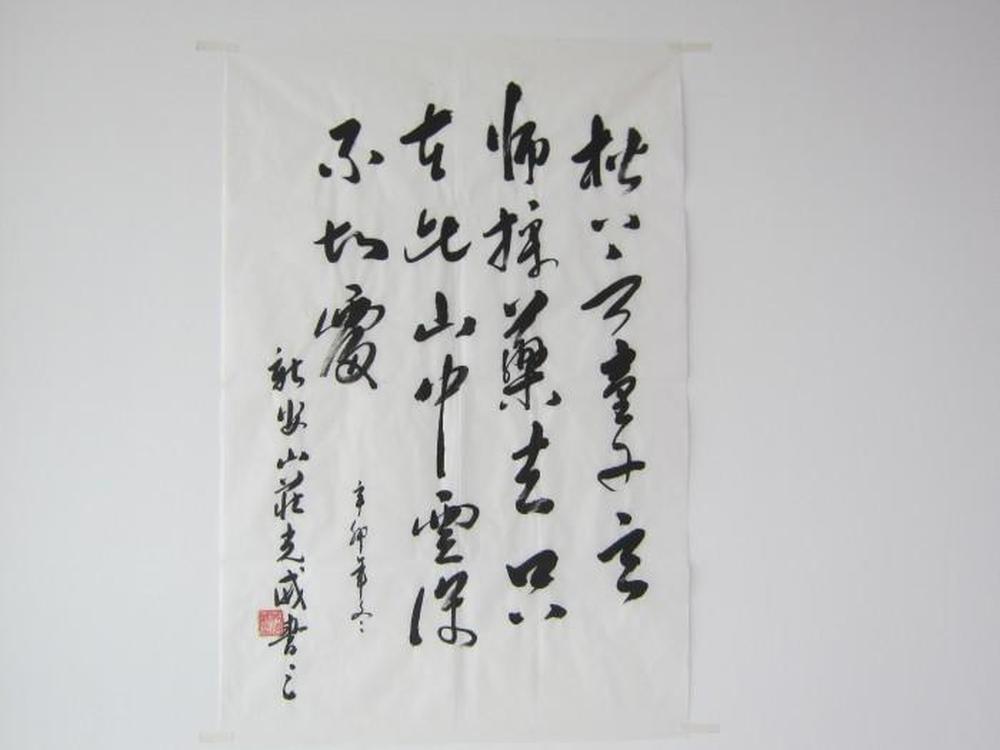 松下問童子言
師採藥去只
在此山中雲深
不知處
辛卯年冬
安山莊克威書之